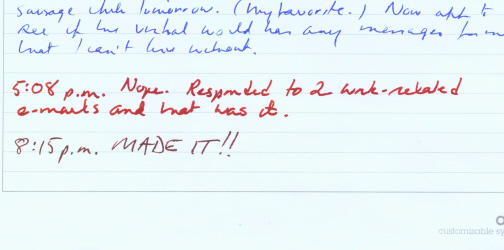 sausage chili tomorrow. (My favorite.) Now off to
see if the virtual world has any messages for m
that I can't live without.
5:08 p.m. Nope. Responded to 2 work-related
e-mails and that was it.
8:15 p.m. MADE IT!!
customizable sy